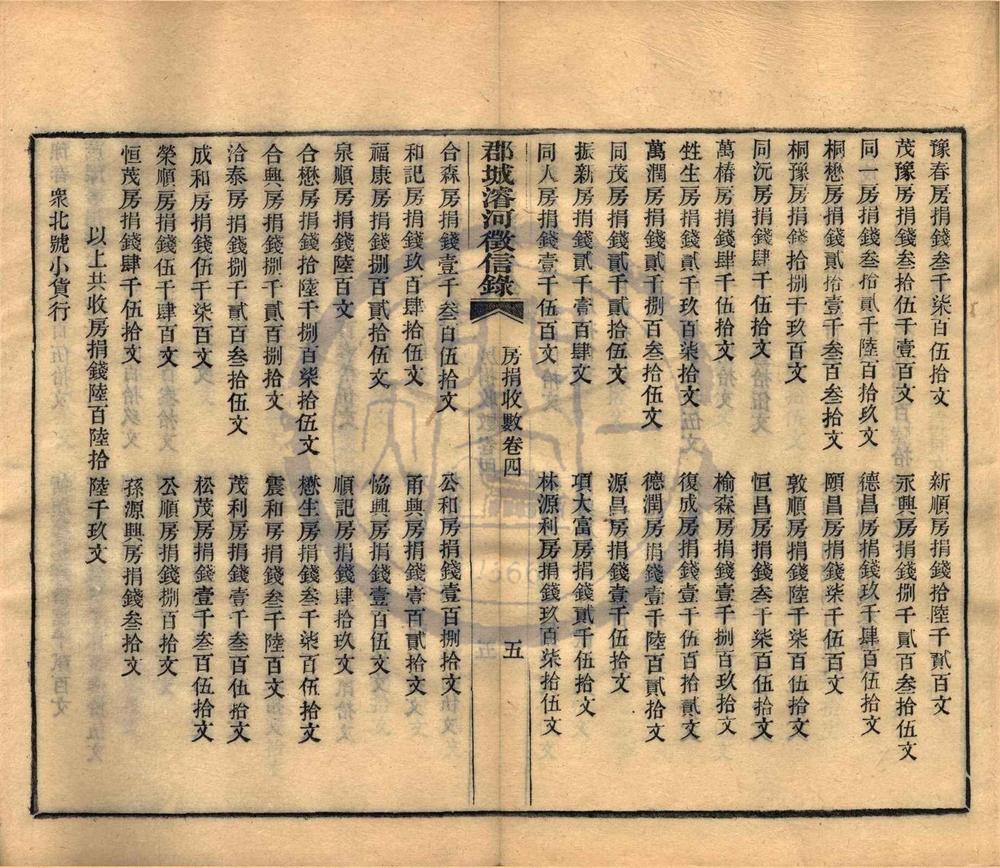 豫春房捐錢叁千柒百伍拾文　新順房捐錢拾陸千貳百文
茂豫房捐錢叁拾伍千壹百文　永興房捐錢捌千貳百叁拾伍文
同一房捐錢叁拾貳千陸百拾玖文　德昌房捐錢玖千肆百伍拾文
桐懋房捐錢貳拾壹千叁百叁拾文　頤昌房捐錢柒千伍百文
桐豫房捐錢拾捌千玖百文　敦順房捐錢陸千柒百伍拾文
同沅房捐錢肆千伍拾文　恒昌房捐錢叁千柒百伍拾文
萬椿房捐錢肆千伍拾文　榆森房捐錢壹千捌百玖拾文
甡生房捐錢貳千玖百柒拾文　復成房捐錢壹千伍百拾貳文
萬潤房捐錢貳千捌百叁拾伍文　德潤房捐錢壹千陸百貳拾文
同茂房捐錢貳千貳拾伍文　源昌房捐錢壹千伍拾文
振新房捐錢貳千壹百肆文　項大富房捐錢貳千伍拾文
同人房捐錢壹千伍百文　林源利房捐錢玖百柒拾伍文
郡城濬河徵信錄　房捐收數卷四　五
合森房捐錢壹千叁百伍拾文　公和房捐錢壹百捌拾文
和記房捐錢玖百肆拾伍文　甬興房捐錢壹百貳拾文
福康房捐錢捌百貳拾伍文　協興房捐錢壹百伍文
泉順房捐錢陸百文　順記房捐錢肆拾玖文
合懋房捐錢拾陸千捌百柒拾伍文　懋生房捐錢叁千柒百伍拾文
合興房捐錢捌千貳百捌拾文　震和房捐錢叁千陸百文
洽泰房捐錢捌千貳百叁拾伍文　茂利房捐錢壹千叁百伍拾文
成和房捐錢伍千柒百文　松茂房捐錢壹千叁百伍拾文
榮順房捐錢伍千肆百文　公順房捐錢捌百拾文
恒茂房捐錢肆千伍拾文　孫源興房捐錢叁拾文
以上共收房捐錢陸百陸拾陸千玖文
衆北號小貨行